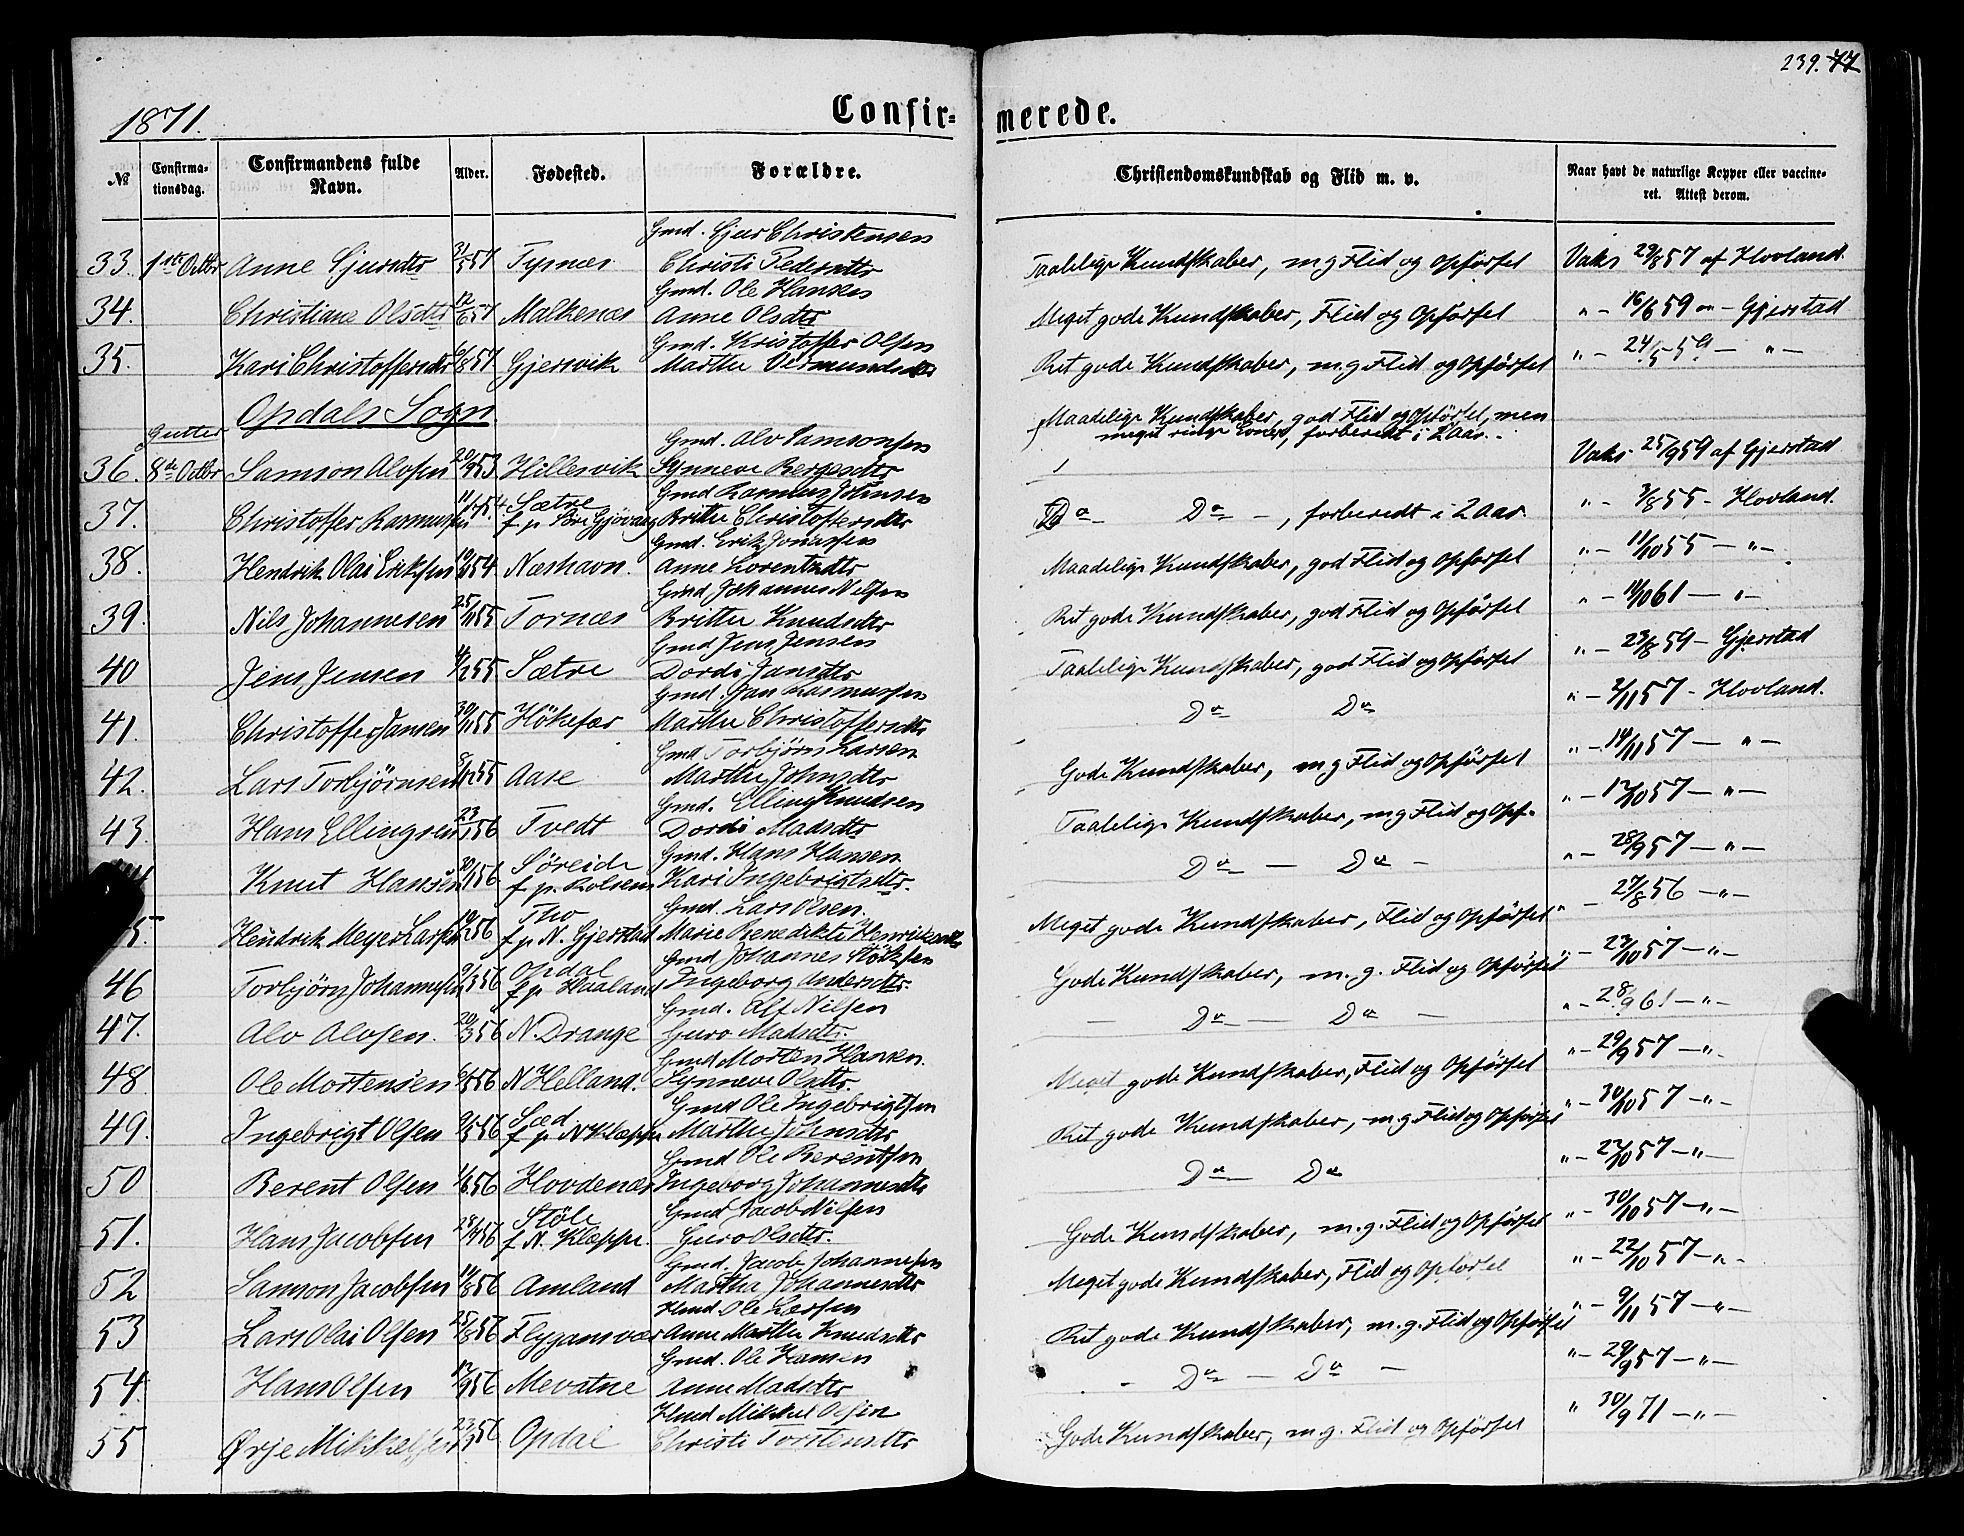 239. 77
1871.
Confirmerede.
№ Confirmationsdag. Confirmandens fulde Navn. Alder. Fødested. Forældre. Christendomskundskab og Flid m. v. Naar havt de naturlige Kopper eller vaccineret. Attest derom.
Gmd. Sjur Christensen
33. 1ste Octbr Anne Sjursdtr 31/5 57 Tysnæs Christi Pedersdtr Taalelige Kundskaber, m g Flid og Opførsel Vaks 29/8 57 af Hovland.
Gmd. Ole Hansen
34. Christiane Olsdtr Malkenæs Anne Olsdtr Meget gode Kundskaber, Flid og Opførsel " - 16/6 59 " - Gjerstad
Gmd. Kristoffer Olsen
35. Kari Christoffersdtr Gjersvik Marthe Vermundsdtr Ret gode Kundskaber, m.g Flid og Opførsel " - 24/5 59 - " -
Opdals Sogn.
Gutter
Gmd. Alv Samsonsen Maadelige Kundskaber, god Flid og Opførsel, men
meget ringe Evner, forberedt i 2 Aar.
36. 8de Octbr Samson Alvsen 20/9 53 Hillesvik Synneve Bergesdtr Vaks 25/9 59 af Gjerstad
Gmd Rasmus Johnsen
37. Christoffer Rasmussen Sætre f. p. Gjøvaag Brithe Christoffersdtr Do Do -, forberedt i 2 Aar " - 3/8 55 - Hovland.
Gmd. Erik Jonassen
38. Hendrik Olai Eriksen Næshavn. Anne Lorentsdtr Maadelige Kundskaber, god Flid og Opførsel " - 11/10 55 - " -
Gmd Johannes Nilsen
39. Nils Johannesen 25/11 55 Tornæs Brithe Knudsdtr Ret gode Kundskaber, god Flid og Opførsel " - 61 - " -
Gmd Jens Jensen
40 Jens Jensen 55 Sætre Dordi Jansdtr Taalelige Kundskaber, god Flid og Opførsel " - 23/8 59 - Gjerstad
Gmd. Jan Rasmussen
41. Christoffer Jansen 30/11 55 Høkefær Marthe Christoffersdtr Do Do " - 2/11 57 - Hovland.
Gmd Torbjørn Larsen
42. Lars Torbjørnsen 55 Aase Marthe Johnsdtr Gode Kundskaber, m g Flid og Opførsel " - 14/11 57 - " -
Gmd. Elling Knudsen
43. Hans Ellingsen 23/1 56 Tvedt Dordi Madsdtr Taalelige Kundskaber, m g Flid og Opf. " - 17/10 57 - " -
Gmd. Hans Hansen
Knut Hansen 30/1 56 Søreide f. p. Rolsens Kari Ingebrigtsdtr. Do - Do - " - 28/9 57 - " -
Gmd. Lars Olsen.
5. Hendrik Meyer Larsen 56 Tho f. p. N. Gjerstad Marie Benedikte Henriksdtr Meget gode Kundskaber, Flid og Opførsel " - 27/8 56 - " -
Gmd Johannes
46 Torbjørn Johannessen 9/3 56 Opdal f p Haaland Ingeborg Andersdtr. Gode Kundskaber, m. g. Flid og Opførsel " - 23/10 57 - " -
Gmd. Alf Nilsen
47. Alv Alvsen. 20/3 56 N. Drange Guro Madsdtr. - Do - Do - " - 28/9 61 - " -
Gmd Morten Hansen.
48 Ole Mortensen 56 N Helland. Synneve Olsdtr. Meget gode Kundskaber, Flid og Opførsel " - 29/9 57 - " -
Gmd Ole Ingebrigtsen
49. Ingebrigt Olsen 9/5 56 Sæd f. p. N Kleppe Marthe Johnsdtr Ret gode Kundskaber, m.g Flid og Opførsel " - 30/10 57 - " -
Gmd Ole Berentsen
50 Berent Olsen 56 Hovdenæs Ingeborg Johannesdtr Do Do " - 27/10 57 - " -
Gmd Jacob Nilsen
51. Hans Jacobsen 56 Støle f. N. Kleppe. Guro Olsdtr. Gode Kundskaber, m. g. Flid og Opførsel " - 30/10 57 - " -
Gmd. Jacob Johannesen
52 Samson Jacobsen 56 Amland Martha Johannesdtr Meget gode Kundskaber, Flid og Opførsel " - 22/10 57 - " -
Hmd. Ole Larsen
53 Lars Olai Olsen 25/8 56 Flygansvær Anne Marthe Knudsdtr Ret gode Kundskaber, m. g. Flid og Opførsel " - 9/11 57 - " -
Gmd. Ole Hansen
54. Hans Olsen 17/9 56 Mevatne Anne Madsdtr - Do - Do - " - 29/9 57 - " -
Hmd Mikkel Olsen
55 Ørje Mikkelsen 56 Opdal Christi Torstensdtr Gode Kundskaber, m.g. Flid og Opførsel " 30/9 71 - " -